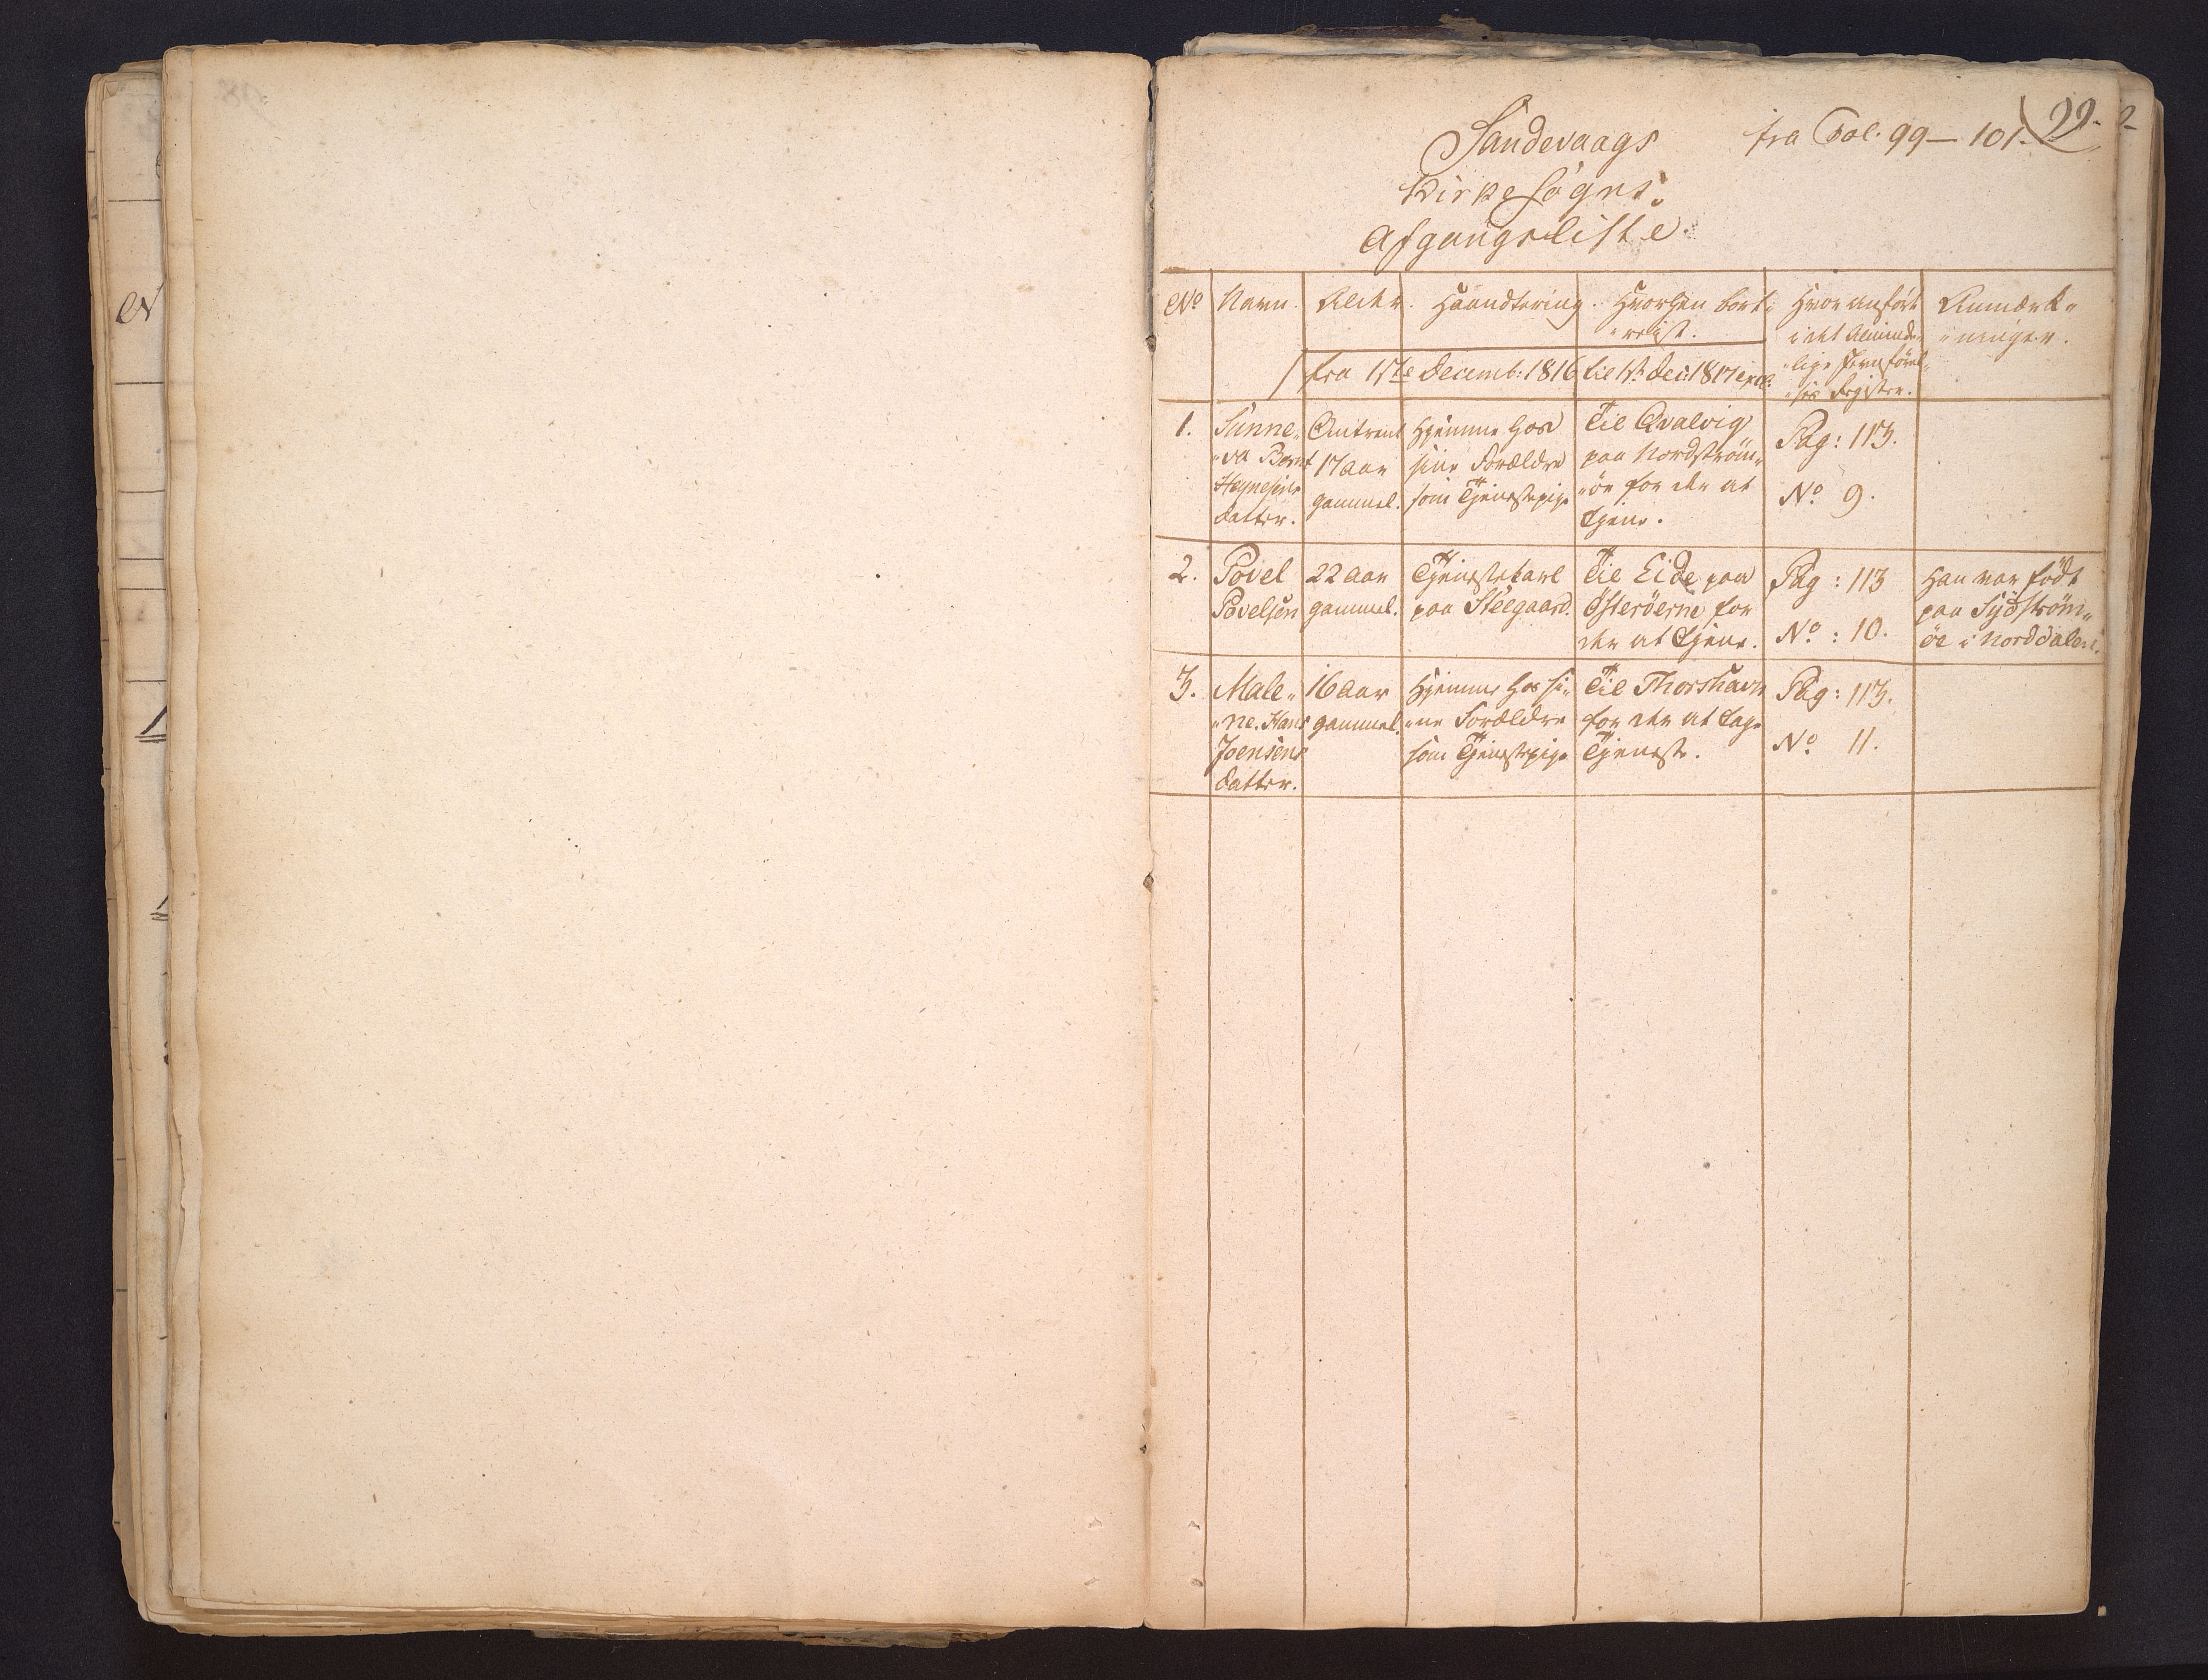 Sandevaags
fra Fol. 99 — 101.
99.
Kirkesogns.
Afgangsliste.
No Navn. Alder. Haandtering. Hvorhen bort-
reist.
Hvor anført
i det Alminde-
lige Jevnførel-
ses Register.
Anmærk-
ninger.
fra 1ste Decemb: 1816 til 1ste Dec: 1817 excl.
1.
Sunne-
va Bernt
Heynesens
datter.
Omtrent
17 Aar
gammel.
Hjemme hos
sine Forældre
som Tjenestepige
Til Qvalvig
paa Nordstrøm-
øe for der at
tjene.
Pag: 113.
No 9.
2.
Povel
Povelsen
22 Aar
gammel.
Tjenestekarl
paa Steegaard.
Til Eide paa
Østerøerne for
der at tjene.
Pag: 113
No: 10.
Han var født
paa Sydstrøm-
øe i Norddalen.
3.
Male-
ne. Hans
Joensens
datter.
16 Aar
gammel.
Hjemme hos si-
ne Forældre
som Tjenestepige
Til Thorshavn
for der at tage
Tjeneste.
Pag: 113.
No 11.